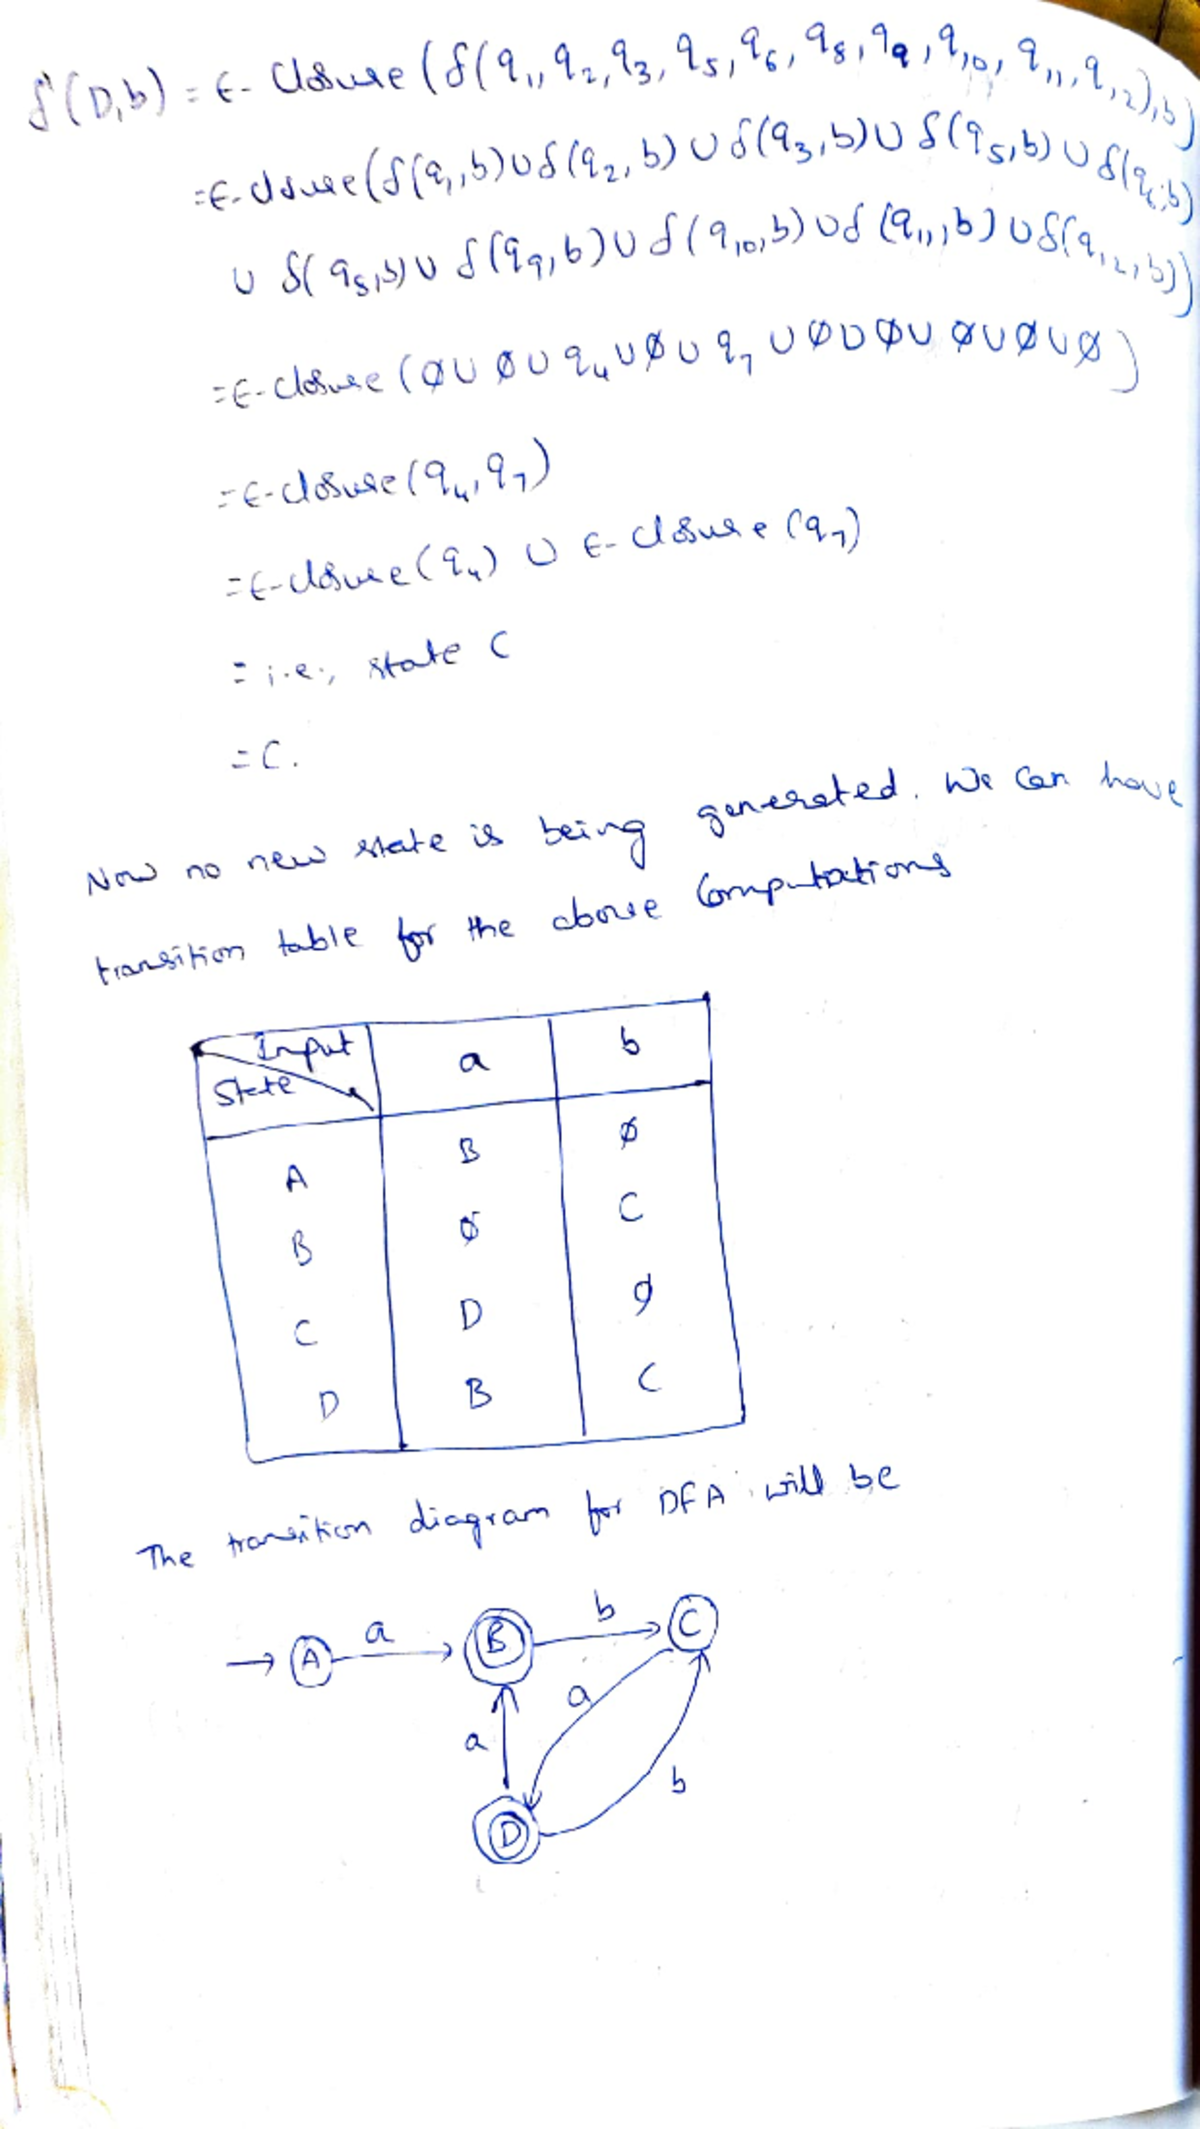 δ'(D,b) = ϵ- Closure (δ(q₁, q₂, q₃, q₅, q₆, q₈, q₉, q₁₀, q₁₁, q₁₂), b)
= ϵ- closure (δ(q₁,b) ∪ δ(q₂, b) ∪ δ(q₃, b) ∪ δ(q₅,b) ∪ δ(q₆,b)
∪ δ(q₈,b) ∪ δ(q₉,b) ∪ δ(q₁₀,b) ∪ δ(q₁₁,b) ∪ δ(q₁₂,b))
= ϵ-closure (ϕ ∪ ϕ ∪ q₄ ∪ ϕ ∪ q₇ ∪ ϕ ∪ ϕ ∪ ϕ ∪ ϕ ∪ ϕ)
= ϵ-closure (q₄, q₇)
= ϵ-closure (q₄) ∪ ϵ- closure (q₇)
= i.e., state C
= C.
Now no new state is being generated. We Can have
transition table for the above Computations
Input a b
State
A B ϕ
B ϕ C
C D ϕ
D B C
The transition diagram for DFA will be
A a B b C
a a b
D